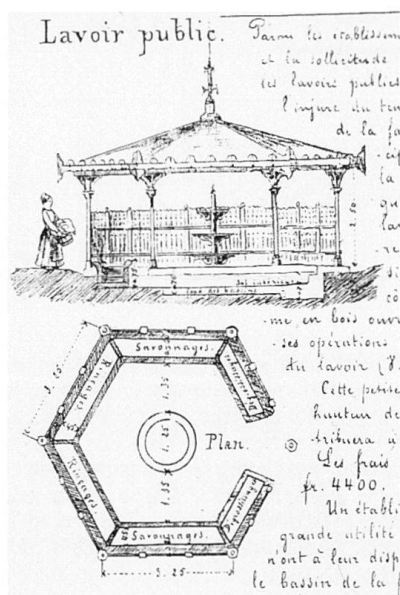 Lavoir public.
Parmi les établissem
et la sollicitude
les lavoirs publics
l'injure du tem
de la fa
cip
la
qu
lav
re
si
cô
me, en bois ouvr
ses opérations
du lavoir (V.
Cette petite
hauteur de
tribuera à
Les frais
fr. 4400.
Un établi
grande utilité
n'ont à leur disp
le bassin de la f
2.50
Sol intérieur
fond des bassins
Savonnages.
3.25
Rinçages
1.35
1.25
Plan.
1.35
Rinçages
Savonnages.
3.25